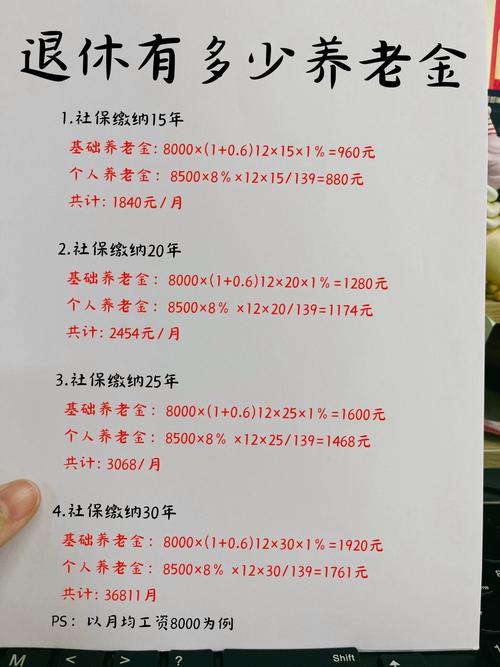 退休有多少养老金
1.社保缴纳15年
基础养老金:8000×(1+0.6)12×15×1%=960元
个人养老金: 8500×8%×12×15/139=880元
共计: 1840元/月
2.社保缴纳20年
基础养老金: 8000×(1+0.6)12×20×1%=1280元
个人养老金: 8500×8% ×12×20/139=1174元
共计:2454元/月
3.社保缴纳25年
基础养老金: 8000×(1+0.6)12×25×1%=1600元
个人养老金: 8500×8% ×12×25/139=1468元
共计: 3068/月
4.社保缴纳30年
基础养老金: 8000×(1+0.6)12×30×1%=1920元
个人养老金: 8500×8% ×12×30/139=1761元
共计: 36811月
PS: 以月均工资8000为例
M < > ? Shift